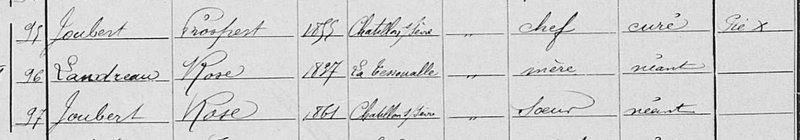 95 Joubert Prospert 1855 Chatillon s/ Sèvre " chef curé
96 Landreau Rose 1837 La Tessoualle " mère néant
97 Joubert Rose 1861 Chatillon s/ Sèvre " Sœur néant